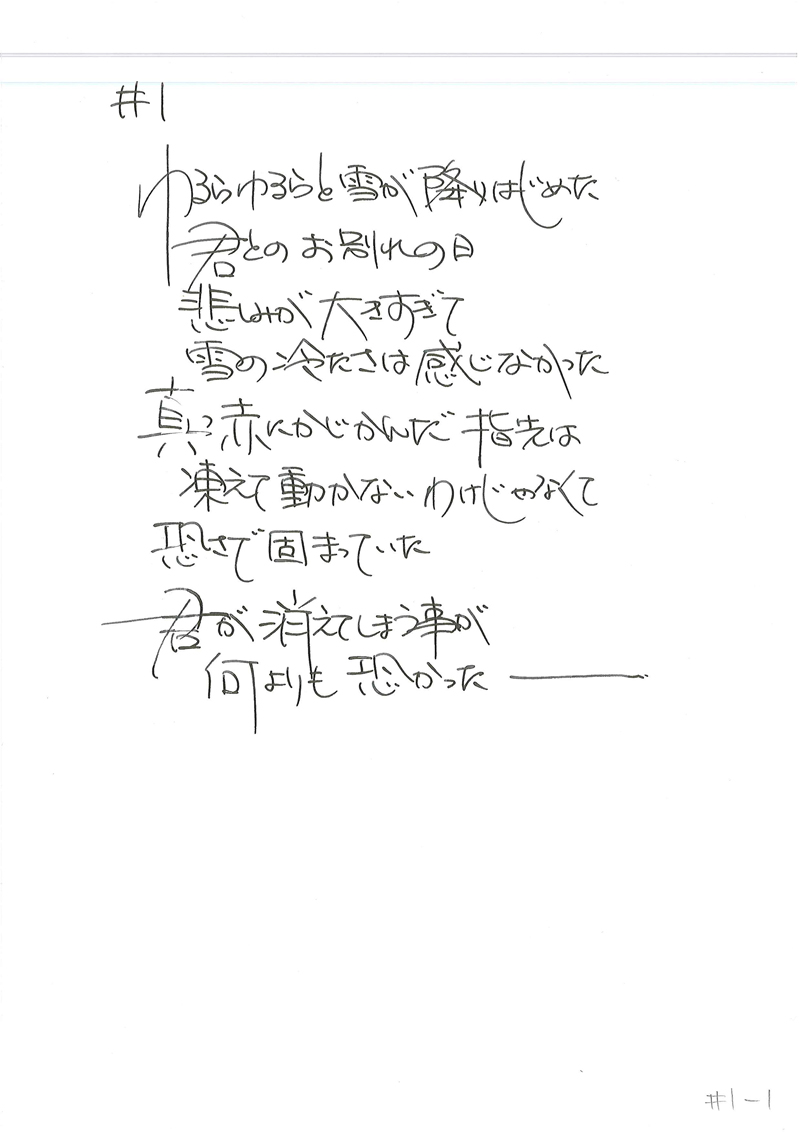 #1
ゆるらゆるらと雪が降りはじめた
君とのお別れの日
悲しみが大きすぎて
雪の冷たさは感じなかった
真っ赤にかじかんだ指先は
凍えて動かないわけじゃなくて
恐さで固まっていた
君が消えてしまう事が
何よりも恐かった ―――
#1-1